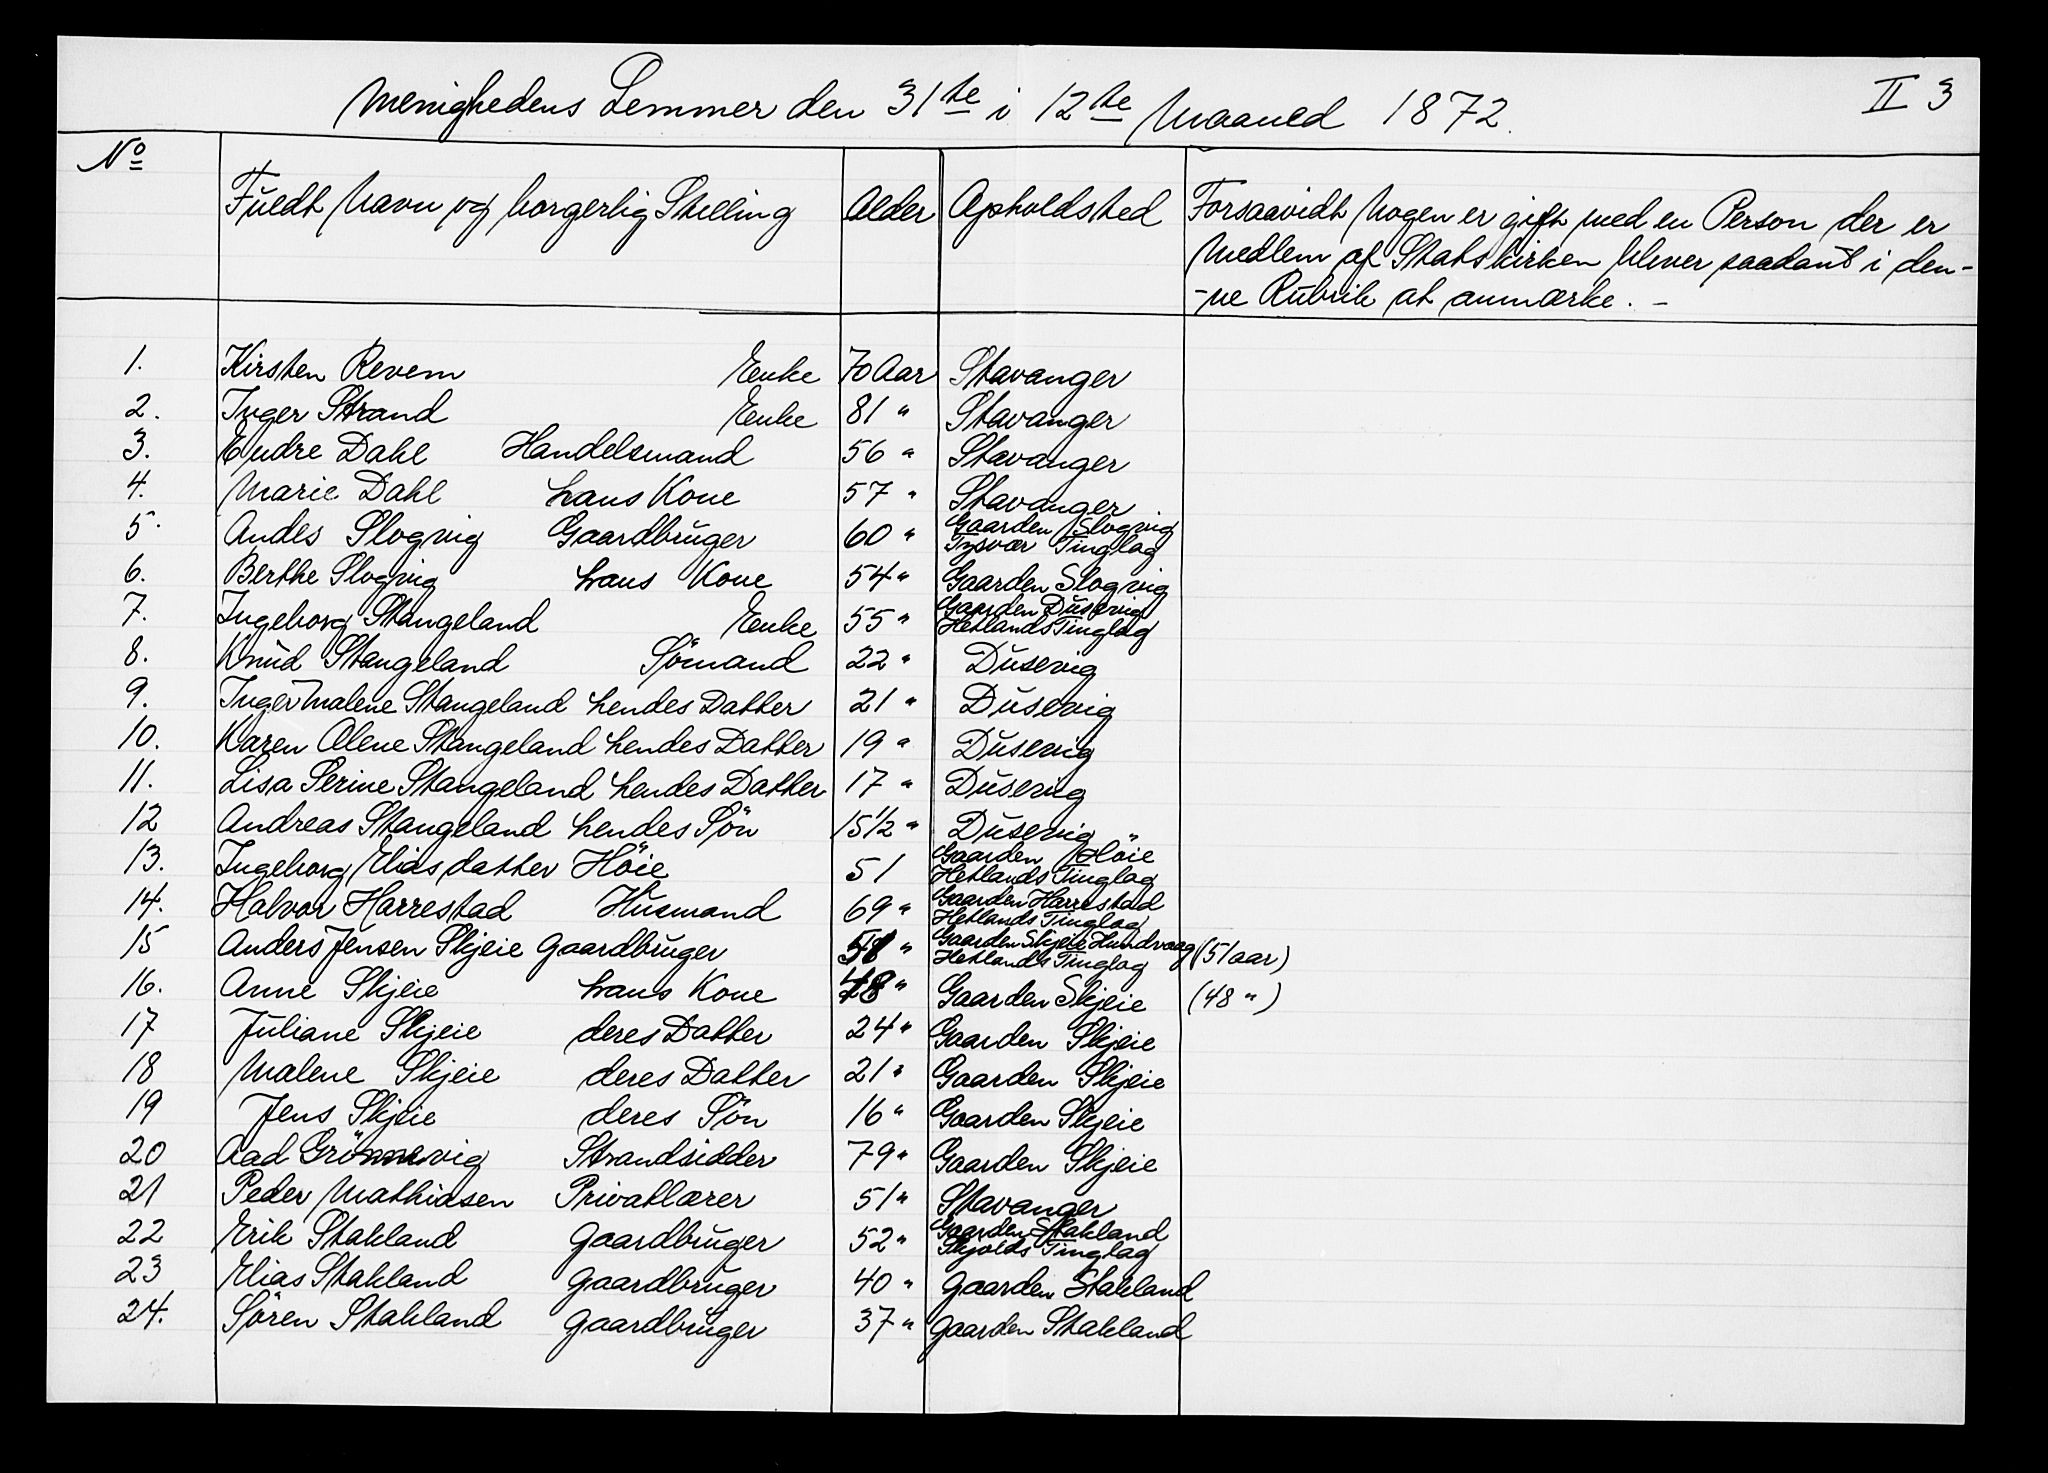 Menighedens Lemmer den 31te i 12te Maaned 1872.
II 3
No
Fuldt Navn og borgerlig Stilling
Alder
Opholdsted
Forsaavidt Nogen er gift med en Person der er
Medlem af Statskirken bliver saadant i den-
-ne Rubrik at anmærke. -
1. Kirsten Revem Enke 70 Aar Stavanger
2. Inger Strand Enke 81 " Stavanger
3. Endre Dahl Handelsmand 56 " Stavanger
4. Marie Dahl hans Kone 57 " Stavanger
5. Andes Slogvig Gaardbruger 60 " Gaarden Slogvig
Tysvær Tinglag
6. Berthe Slogvig hans Kone 54 " Gaarden Slogvig
7. Ingeborg Stangeland Enke 55 " Gaarden Dusevig
Hetlands Tinglag
8. Knud Stangeland Sömand 22 " Dusevig
9. Inger Malene Stangeland hendes Datter 21 " Dusevig
10. Karen Olene Stangeland hendes Datter 19 " Dusevig
11. Lisa Serine Stangeland hendes Datter 17 " Dusevig
12 Andreas Stangeland hendes Sön 15 1/2 " Dusevig
13. Ingeborg Eliasdatter Höie 51 Gaarden Höie
Hetlands Tinglag
14. Halvor Harrestad Husmand 69 " Gaarden Harrestad
Hetlands Tinglag
15 Anders Jensen Skjeie Gaardbruger 51 " Gaarden Skjeie Hundvaag (51 aar)
Hetlands Tinglag
16. Anne Skjeie hans Kone 48 " Gaarden Skjeie (48 ")
17 Juliane Skjeie deres Datter 24 " Gaarden Skjeie
18 Malene Skjeie deres Datter 21 " Gaarden Skjeie
19 Jens Skjeie deres Sön 16 " Gaarden Skjeie
20 Aad Grönnevig Strandsidder 79 " Gaarden Skjeie
21 Peder Mathiasen Privatlærer 51 " Stavanger
22 Erik Stakland Gaardbruger 52 " Gaarden Stakland
Skjolds Tinglag
23 Elias Stakland Gaardbruger 40 " Gaarden Stakland
24. Sören Stakland Gaardbruger 37 " Gaarden Stakland